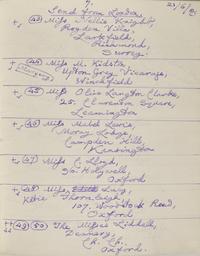 7.
23/6/
Send from London
(43) Miss Nellie Knight,
Royden Villa,
Larkfield,
Richmond,
Surrey.
(44) Miss M. Kidston
Upton Grey Vicarage,
Winchfield
(45) Miss Olive Langton Clarke,
25. Clarendon Square,
Leamington
(46) Miss Mabel Lewis,
Moray Lodge,
Campden Hill,
Kensington
(47) Miss C. Lloyd,
Holywell
Oxford
(48) Miss Lucy,
Thornleigh,
107. Woodstock Road,
Oxford
(49) (50) The Misses Liddell,
Deanery,
Ch. Ch.
Oxford.